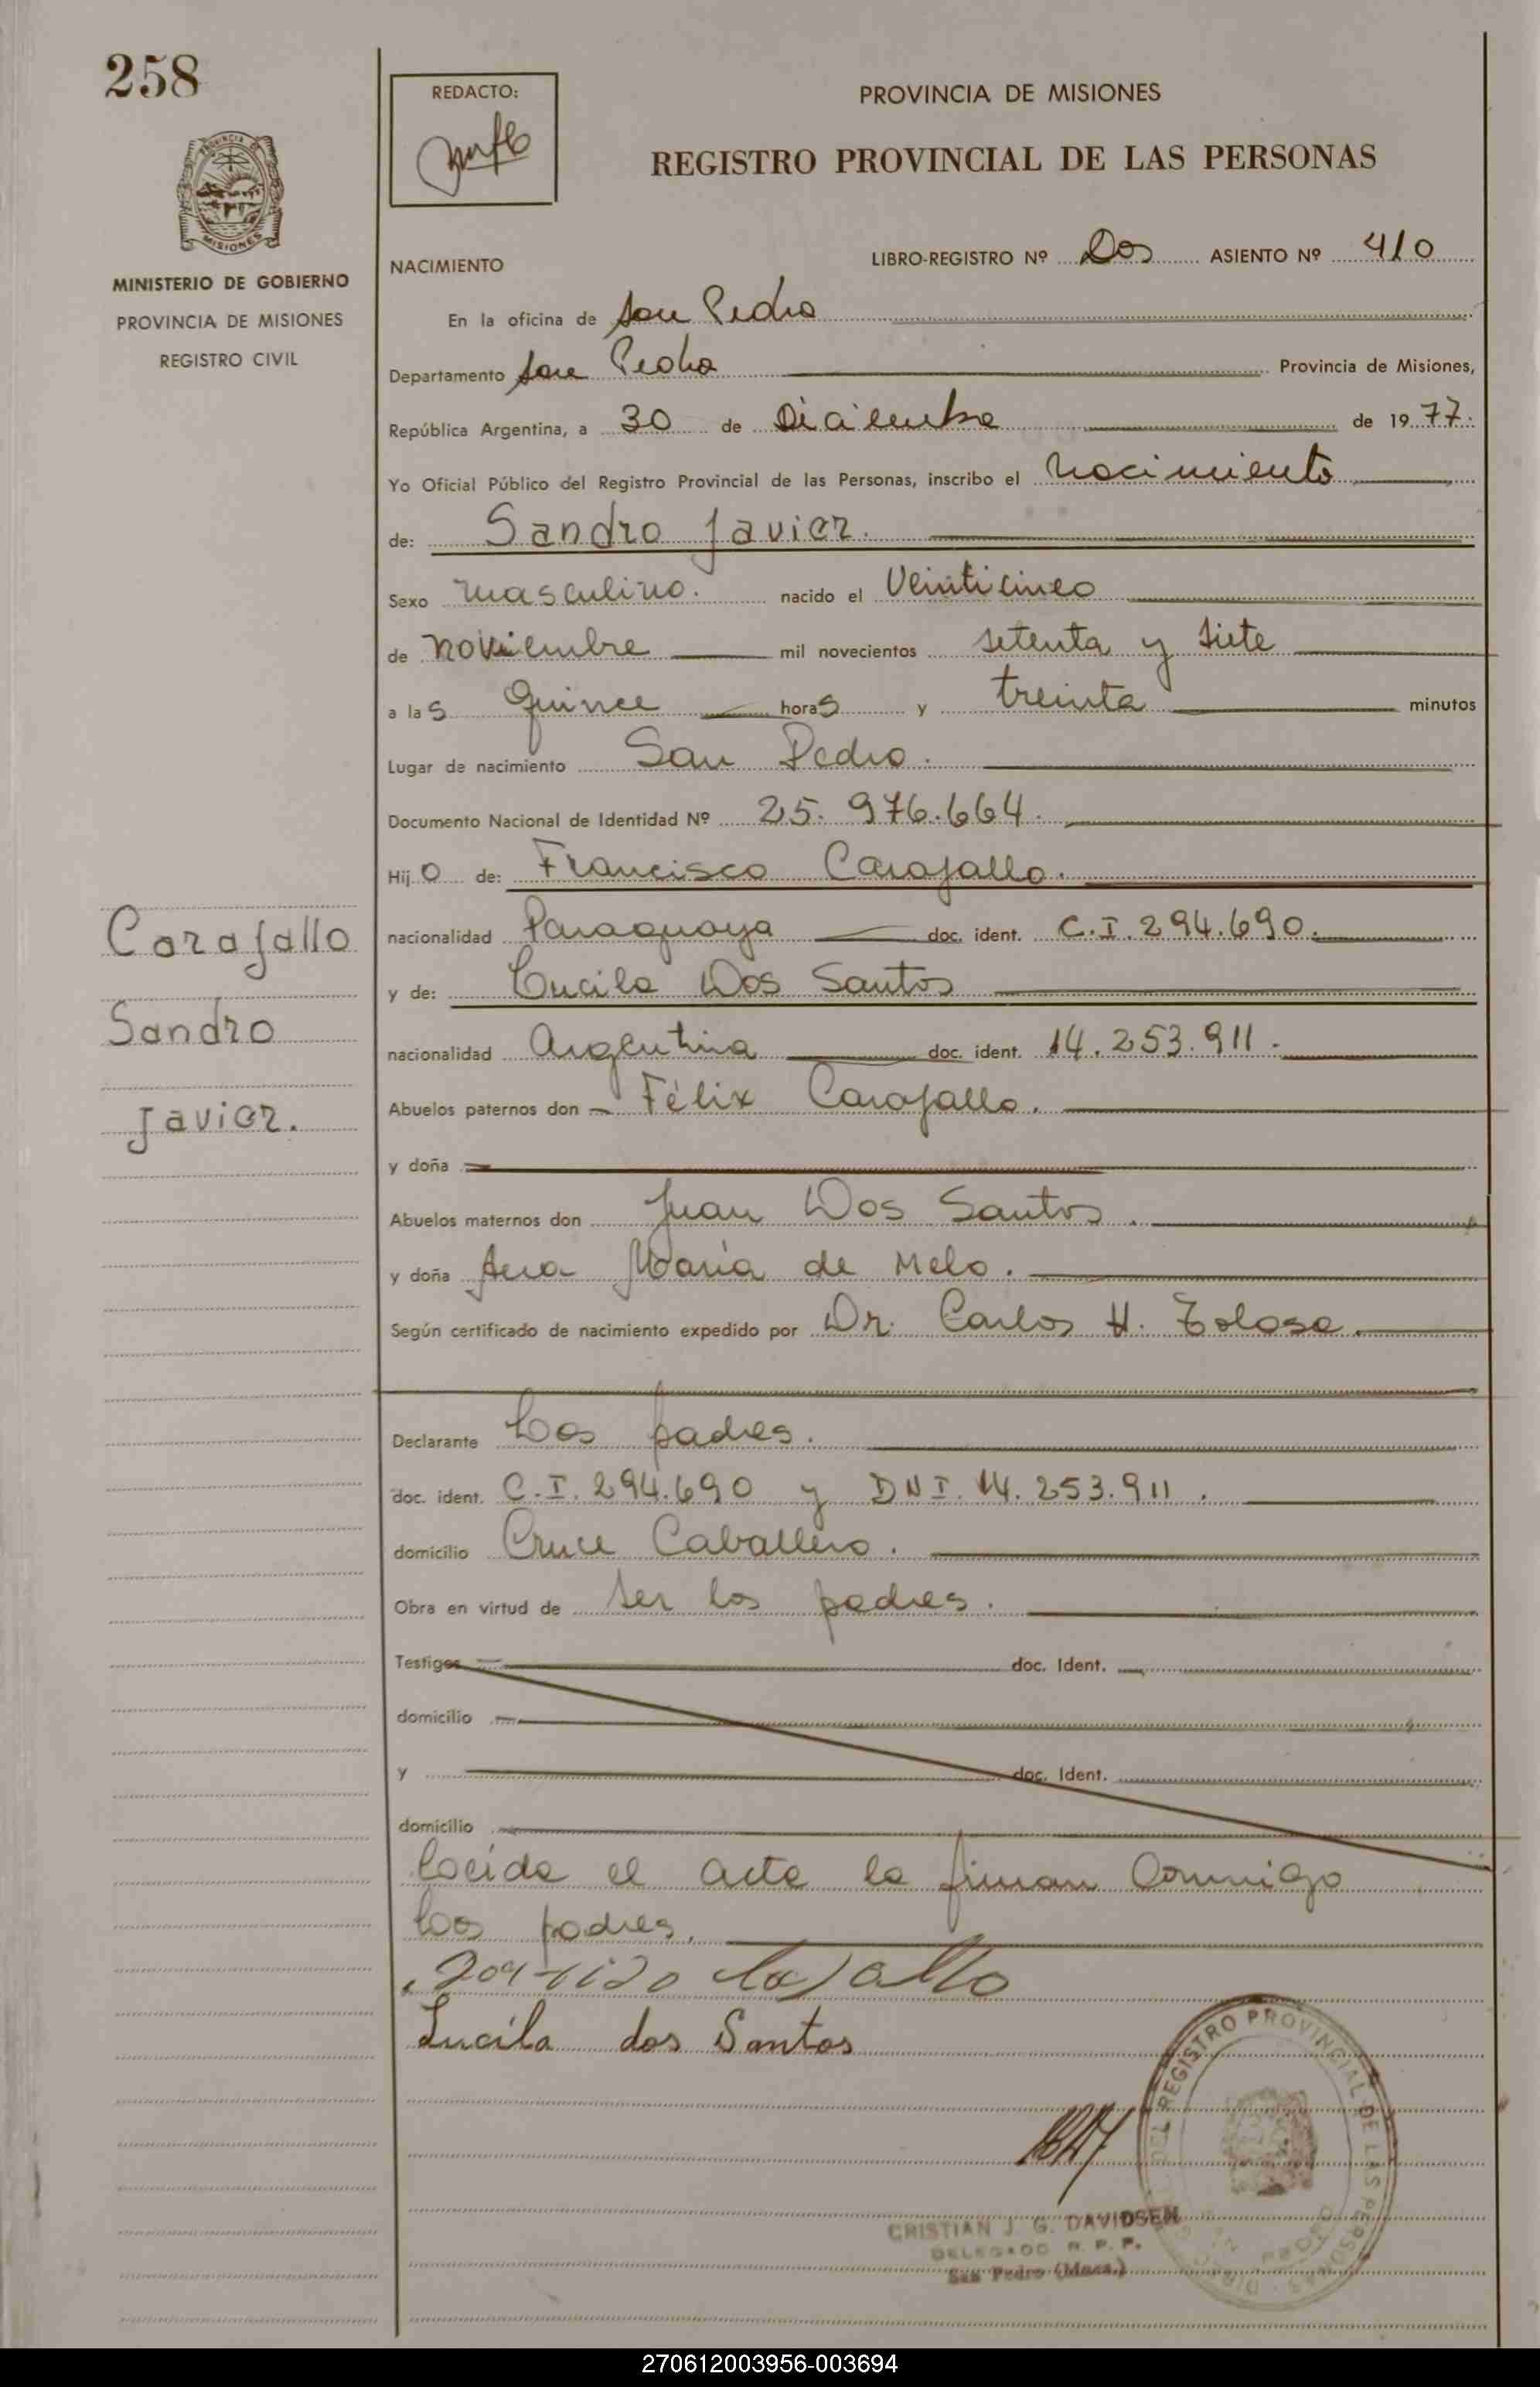 258
REDACTO:
PROVINCIA DE MISIONES
REGISTRO PROVINCIAL DE LAS PERSONAS
PROVINCIA DE
MISIONES
MINISTERIO DE GOBIERNO
PROVINCIA DE MISIONES
REGISTRO CIVIL
NACIMIENTO
LIBRO-REGISTRO Nº Dos ASIENTO Nº 410
En la oficina de San Pedro
Departamento San Pedro Provincia de Misiones,
República Argentina, a 30 de Diciembre de 1977.
Yo Oficial Público del Registro Provincial de las Personas, inscribo el Nacimiento
de: Sandro Javier.
Sexo masculino. nacido el Veinticinco
de noviembre mil novecientos setenta y siete
a las quince horas y treinta minutos
Lugar de nacimiento San Pedro.
Documento Nacional de Identidad Nº 25.976.664.
Hijo de: Francisco Carajallo.
nacionalidad Paraguaya doc. ident. C.I. 294.690.
y de: Lucila Dos Santos
nacionalidad Argentina doc. ident. 14.253.911.
Abuelos paternos don Félix Carajallo.
y doña
Abuelos maternos don Juan Dos Santos.
y doña Ana María de Melo.
Según certificado de nacimiento expedido por Dr. Carlos H. Tolosa.
Carajallo
Sandro
Javier.
Declarante Los padres.
doc. ident. C.I. 294.690 y DNI. 14.253.911.
domicilio Cruce Caballero.
Obra en virtud de ser los padres.
Testigos doc. Ident.
domicilio
y doc. Ident.
domicilio
Leída el acta la firman conmigo
los padres.
Lucila dos Santos
DEL REGISTRO PROVINCIAL DE LAS PERSONAS
CRISTIAN J. G. DAVIDSEN
DELEGADO R. P. P.
San Pedro (Mnes.)
270612003956-003694